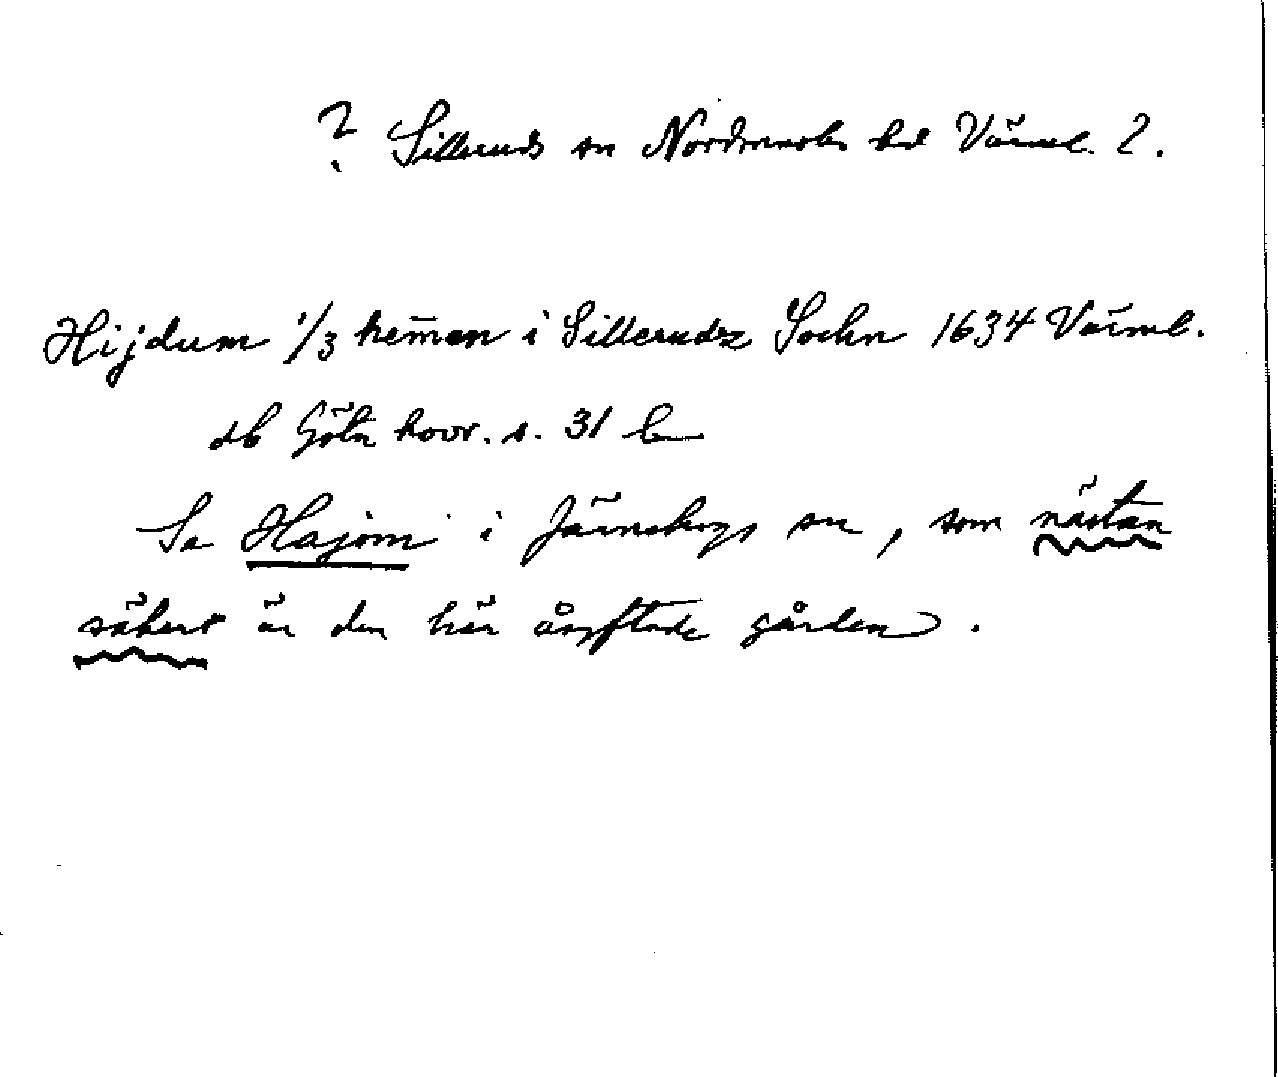 ? Silleruds sn Nordmarks hd Värml. ?.
Hijdum 1/3 hem̄an i Sillerudz Sochn 1634 Värml.
db Göta hovr. s. 31 b
Se Hajom i Järnskogs sn, som nästan
säkert är den här åsyftade gården.